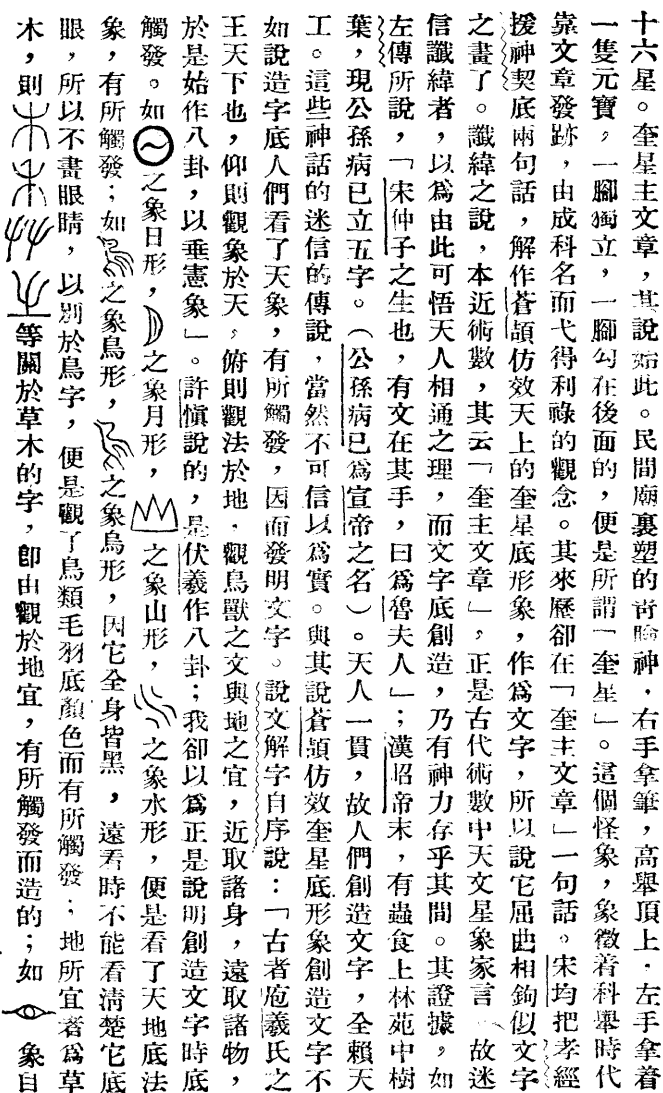 十六星。奎星主文章，其說始此。民間廟裏塑的青臉神，右手拿筆，高舉頂上，左手拿着
一隻元寶，一腳獨立，一腳勾在後面的，便是所謂「奎星」。這個怪象，象徵着科舉時代
靠文章發跡，由成科名而弋得利祿的觀念。其來歷卻在「奎主文章」一句話。宋均把孝經
援神契底兩句話，解作蒼頡仿效天上的奎星底形象，作爲文字，所以說它屈曲相鉤似文字
之畫了。讖緯之說，本近術數，其云「奎主文章」，正是古代術數中天文星象家言，故迷
信讖緯者，以爲由此可悟天人相通之理，而文字底創造，乃有神力存乎其間。其證據，如
左傳所說，「宋仲子之生也，有文在其手，曰爲魯夫人」；漢昭帝末，有蟲食上林苑中樹
葉，現公孫病已立五字。（公孫病已爲宣帝之名）。天人一貫，故人們創造文字，全賴天
工。這些神話的迷信的傳說，當然不可信以爲實。與其說蒼頡仿效奎星底形象創造文字不
如說造字底人們看了天象，有所觸發，因而發明文字。說文解字自序說：「古者庖羲氏之
王天下也，仰則觀象於天，俯則觀法於地，觀鳥獸之文與地之宜，近取諸身，遠取諸物，
於是始作八卦，以垂憲象」。許愼說的，是伏羲作八卦；我卻以爲正是說明創造文字時底
觸發。如之象日形，之象月形，之象山形，之象水形，便是看了天地底法
象，有所觸發；如之象鳥形，之象烏形，因它全身皆黑，遠看時不能看清楚它底
眼，所以不畫眼睛，以別於鳥字，便是觀了鳥類毛羽底顏色而有所觸發；地所宜者爲草
木，則等關於草木的字，卽由觀於地宜，有所觸發而造的；如象目